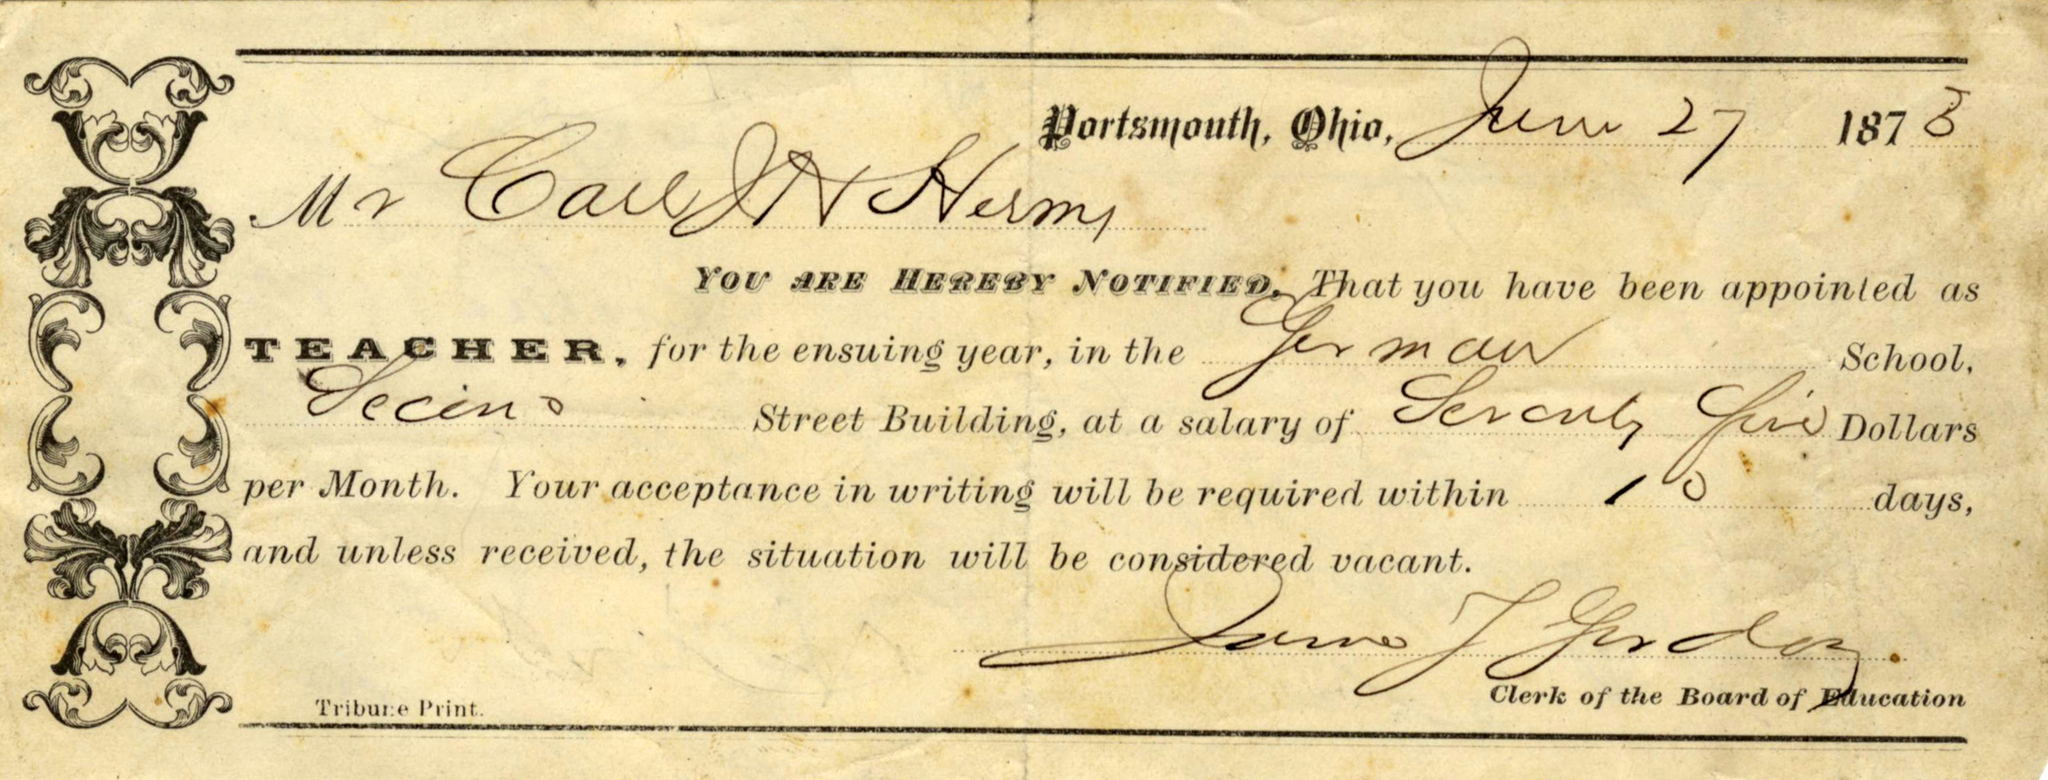 Portsmouth, Ohio, June 27 1873
Mr Carl J H Herms
YOU ARE HEREBY NOTIFIED, That you have been appointed as
TEACHER, for the ensuing year, in the German School,
Second Street Building, at a salary of Seventy Five Dollars
per Month. Your acceptance in writing will be required within 10 days,
and unless received, the situation will be considered vacant.
Gordon
Clerk of the Board of Education
Tribune Print.